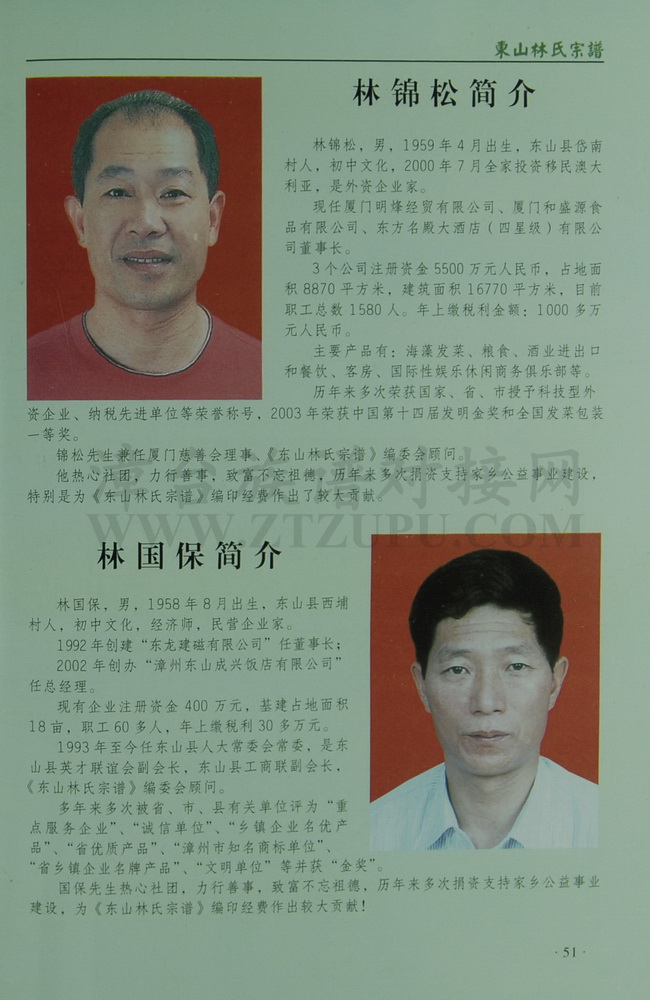 東山林氏宗譜
林锦松简介
林锦松，男，1959年4月出生，东山县岱南
村人，初中文化，2000年7月全家投资移民澳大
利亚，是外资企业家。
现任厦门明烽经贸有限公司、厦门和盛源食
品有限公司、东方名殿大酒店（四星级）有限公
司董事长。
3个公司注册资金5500万元人民币，占地面
积8870平方米，建筑面积16770平方米，目前
职工总数1580人。年上缴税利金额：1000多万
元人民币。
主要产品有：海藻发菜、粮食、酒业进出口
和餐饮、客房、国际性娱乐休闲商务俱乐部等。
历年来多次荣获国家、省、市授予科技型外
资企业、纳税先进单位等荣誉称号，2003年荣获中国第十四届发明金奖和全国发菜包装
一等奖。
锦松先生兼任厦门慈善会理事、《东山林氏宗谱》编委会顾问。
他热心社团，力行善事，致富不忘祖德，历年来多次捐资支持家乡公益事业建设，
特别是为《东山林氏宗谱》编印经费作出了较大贡献。
漳台族谱对接网
WWW.ZTZUPU.COM
林国保简介
林国保，男，1958年8月出生，东山县西埔
村人，初中文化，经济师，民营企业家。
1992年创建“东龙建磁有限公司”任董事长；
2002年创办“漳州东山成兴饭店有限公司”
任总经理。
现有企业注册资金400万元，基建占地面积
18亩，职工60多人，年上缴税利30多万元。
1993年至今任东山县人大常委会常委，是东
山县英才联谊会副会长，东山县工商联副会长，
《东山林氏宗谱》编委会顾问。
多年来多次被省、市、县有关单位评为“重
点服务企业”、“诚信单位”、“乡镇企业名优产
品”、“省优质产品”、“漳州市知名商标单位”、
“省乡镇企业名牌产品”、“文明单位”等并获“金奖”。
国保先生热心社团，力行善事，致富不忘祖德，历年来多次捐资支持家乡公益事业
建设，为《东山林氏宗谱》编印经费作出较大贡献！
·51·